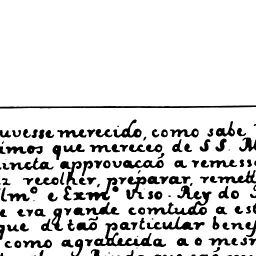 uvesse merecido, como sabe
imos que mereceo de S S. M
incta approvaçaõ a remess
z recolher, preparar, remett
lm.º e Exm.º Viso-Rey do
e era grande comtudo a est
que de taõ particular benef
como agradecida a o mesr